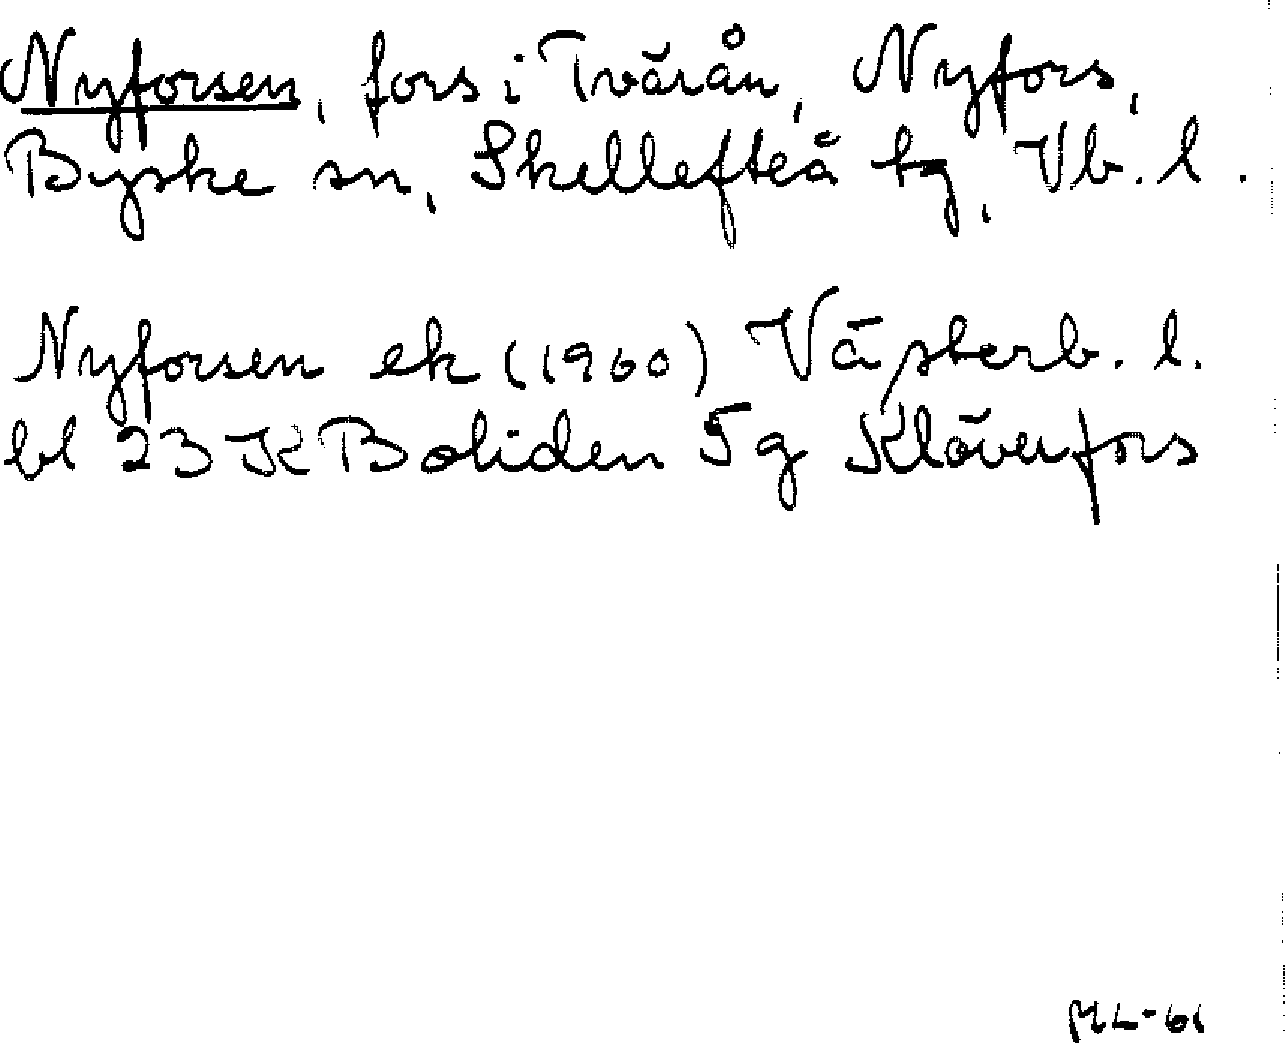 Nyforsen, fors i Tvärån, Nyfors,
Byske sn, Skellefteå tg, Vb. l.
Nyforsen ek (1960) Västerb. l.
bl 23 K Boliden 5 g Klöverfors
ML-61